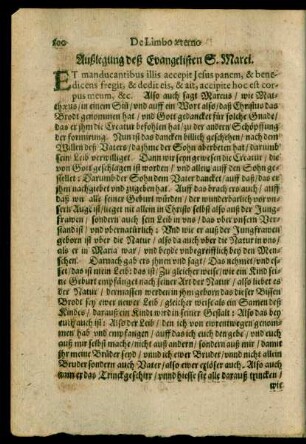 800 De Limbo æterno
Außlegung deß Evangelisten S. Marci.
ET manducantibus illis accepit Jesus panem, & bene-
dicens fregit, & dedit eis, & ait, accipite hoc est cor-
pus meum, &c. Also auch sagt Marcus / wie Mat-
thæus / in einem Siñ / und auff ein Wort also / daß Christus das
Brodt genommen hat / und Gott gedancket für solche Gnade /
das er ihm die Creatur befohlen hat / zu der andern Schöpffung
der formirung. Nun ist das dancken billich geschehen / nach dem
Willen deß Vaters / da ihme der Sohn oberbeten hat / darumb
sein Leib verwilliget. Dann wir seyn gewesen die Creatur / die
von Gott geschlagen ist worden / und allein auff den Sohn ge-
stellet: Darumb der Sohn den Vater dancket / auff das / das er
ihm nachgibet und zugeben hat. Auff das brach ers auch / auff
daß wir alle seiner Geburt würden / der wunderbarlich vor un-
sern Augē ist / lieget nit allein in Christo selbst also auß der Jung-
frawen / sondern auch sein Leib in uns / das ober unsern Ver-
standt ist / und obernatürlich: Und wie er auß der Jungfrawen
geborn ist ober die Natur / also da auch ober die Natur in uns /
als er in Maria war / und bleybt unbegreifflich bey den Men-
schen. Darnach gab ers ihnen und sagt / Das nehmet / und es-
set / das ist mein Leib: das ist / Zu gleicher weise / wie ein Kind sei-
ne Geburt empfanget nach seiner Art der Natur / also lieber as
der Natur / dermassen werden in euch geborn das ihr die Bissen
Brodt sey ewer newer Leib / gleicher weise als ein Samen deß
Kindes / darauß ein Kindt wird in seiner Gestalt: Also das bey
euch auch ist: Also der Leib / den ich von ewentwegen gewonn-
men hab und empfangen / auff das ich euch den gebe / und euch
auß mir mache / nicht auß andern / sondern auß mir / damit
ihr meine Brüder seyd / unnd ich ewer Bruder / unnd nicht allein
Bruder sondern auch Vater / also ewer erlöser auch. Also auch
nam er das Trinckgeschirr / unnd hiesse sie alle darauß trincken /
wie